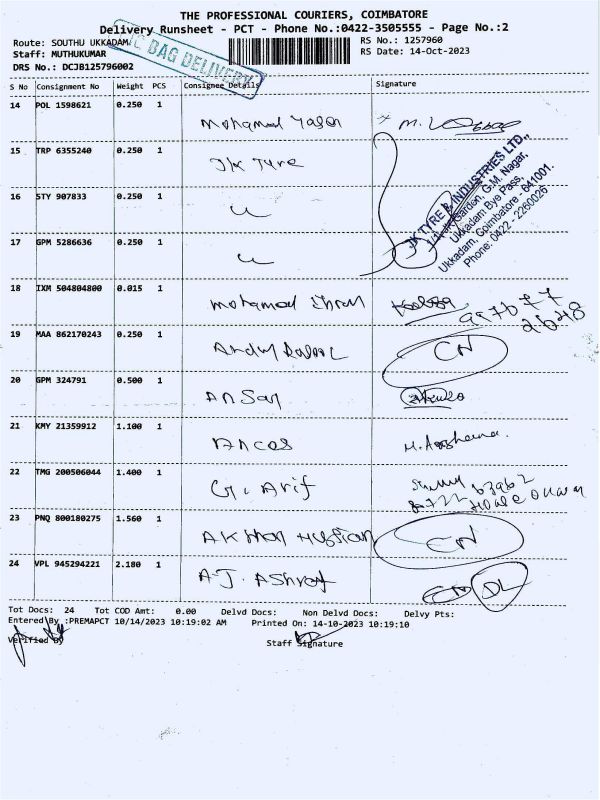 THE PROFESSIONAL COURIERS, COIMBATORE
Delivery Runsheet - PCT - Phone No.:0422-3505555 - Page No.:2
Route: SOUTHU UKKADAM
RS No.: 1257960
Staff: MUTHUKUMAR
RS Date: 14-Oct-2023
DRS No.: DCJB125796002
BAG DELIVERY
S No Consignment No Weight PCS Consignee Details Signature
14 POL 1598621 0.250 1 Mohamed Yasen
15 TRP 6355240 0.250 1 JK Tyre
16 STY 907833 0.250 1 u
17 GPM 5286636 0.250 1 u
JK TYRE & INDUSTRIES LTD.,
Garden, G.M. Nagar,
Ukkadam Bye Pass,
Ukkadam, Coimbatore - 641001.
Phone: 0422 - 2260026
18 IXM 504804800 0.015 1 Mohamed
997677
2648
19 MAA 862170243 0.250 1 CN
20 GPM 324791 0.500 1 Ansar
21 KMY 21359912 1.100 1
22 TMG 200506044 1.400 1 G. Arif
23 PNQ 800180275 1.560 1 CN
24 VPL 945294221 2.180 1 A.J. Ashraf
Tot Docs: 24 Tot COD Amt: 0.00 Delvd Docs: Non Delvd Docs: Delvy Pts:
Entered By :PREMAPCT 10/14/2023 10:19:02 AM Printed On: 14-10-2023 10:19:10
Verified By
Staff Signature